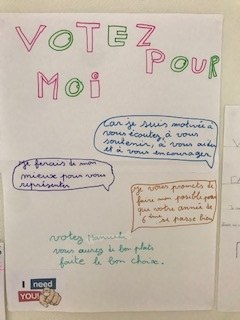 VOTEZ
POUR
MOI
Car je suis motivée à
vous écoutez, à vous
soutenir, à vous aider
et à vous encourager.
je ferais de mon
mieux pour vous
représenter
je vous promets de
faire mon posible pour
que votre année de
6ème se passe bien
votez
vous aurez de bon plats
faite le bon choix.
I need
YOU!